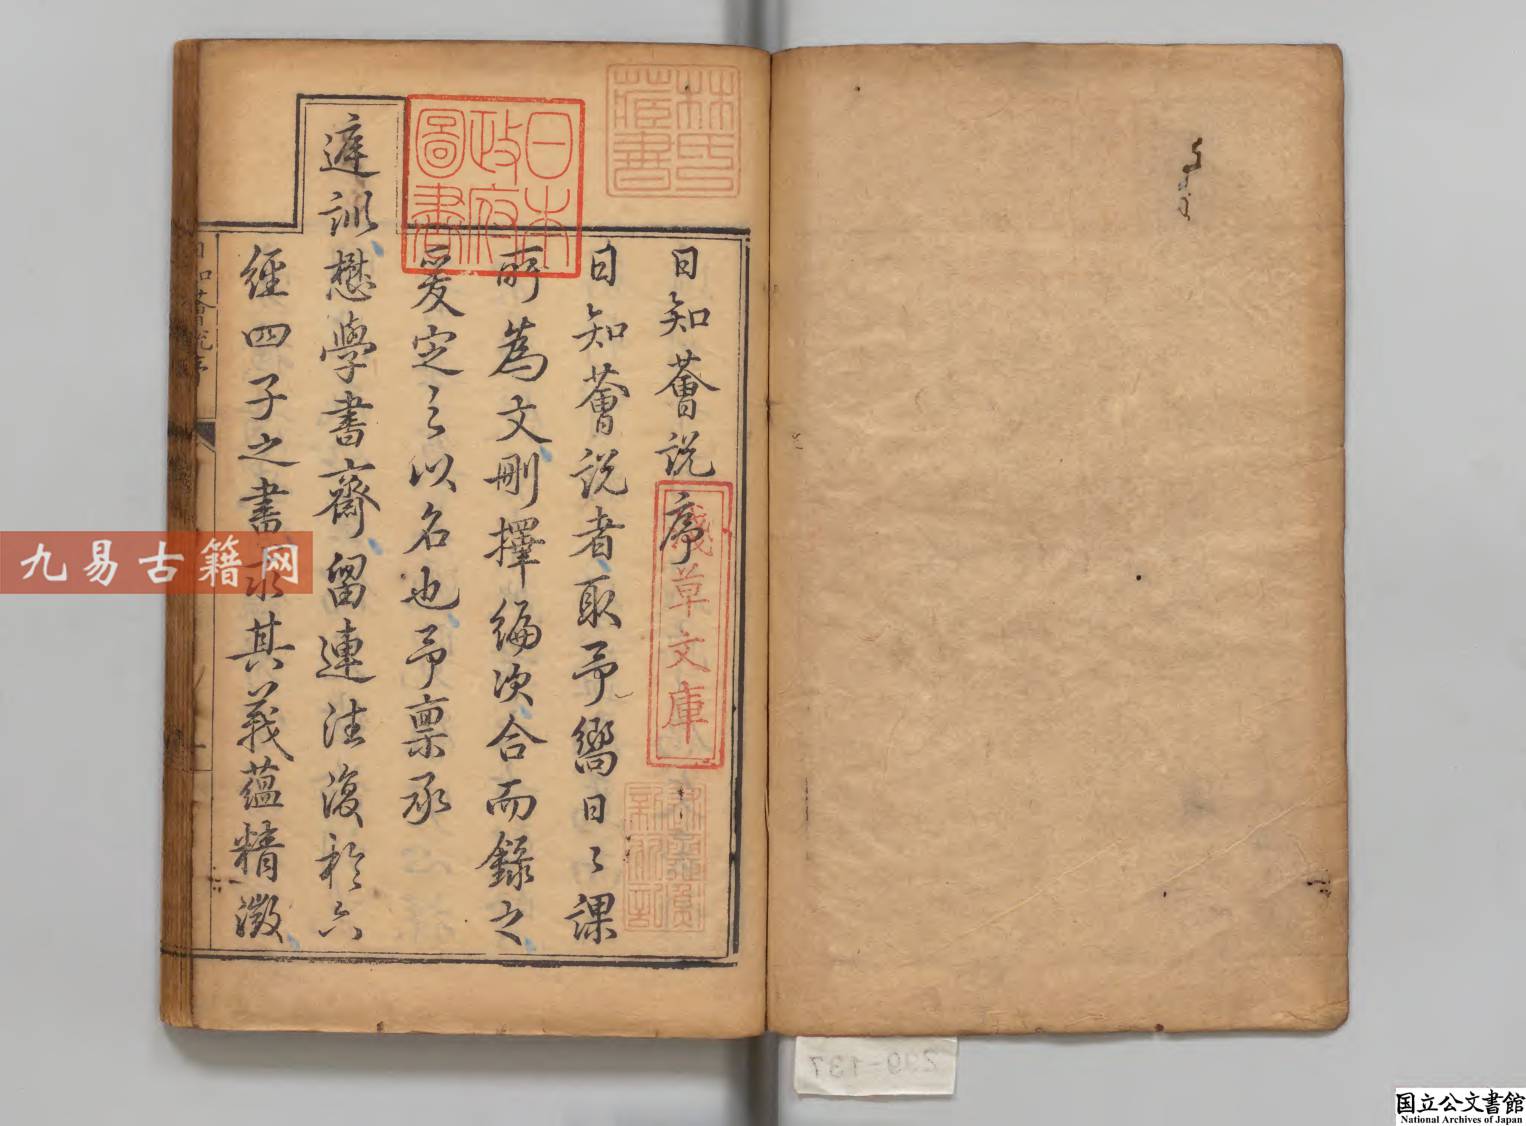 日知薈說序
日知薈說者取予嚮日〻課
所為文刪擇編次合而錄之
爰定之以名也予禀承
庭訓懋學書齋留連往復於六
經四子之書求其義蘊精微
日知薈說序
林氏藏書
日本政府圖書
淺草文庫
九易古籍网
299-137
国立公文書館
National Archives of Japan